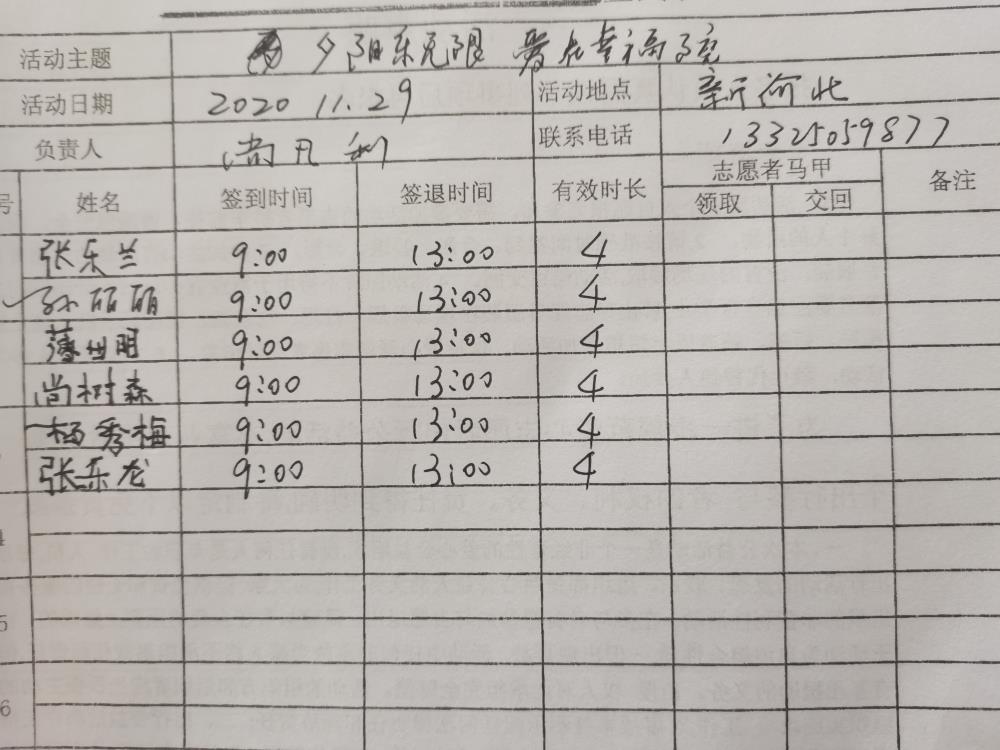 活动主题 夕阳乐无限 爱在幸福院
活动日期 2020 11.29 活动地点 新河北
负责人 尚凡利 联系电话 13325059877
号 姓名 签到时间 签退时间 有效时长 志愿者马甲 备注
领取 交回
张乐兰 9:00 13:00 4
孙丽丽 9:00 13:00 4
9:00 13:00 4
尚树森 9:00 13:00 4
杨秀梅 9:00 13:00 4
张东龙 9:00 13:00 4
4
5
6